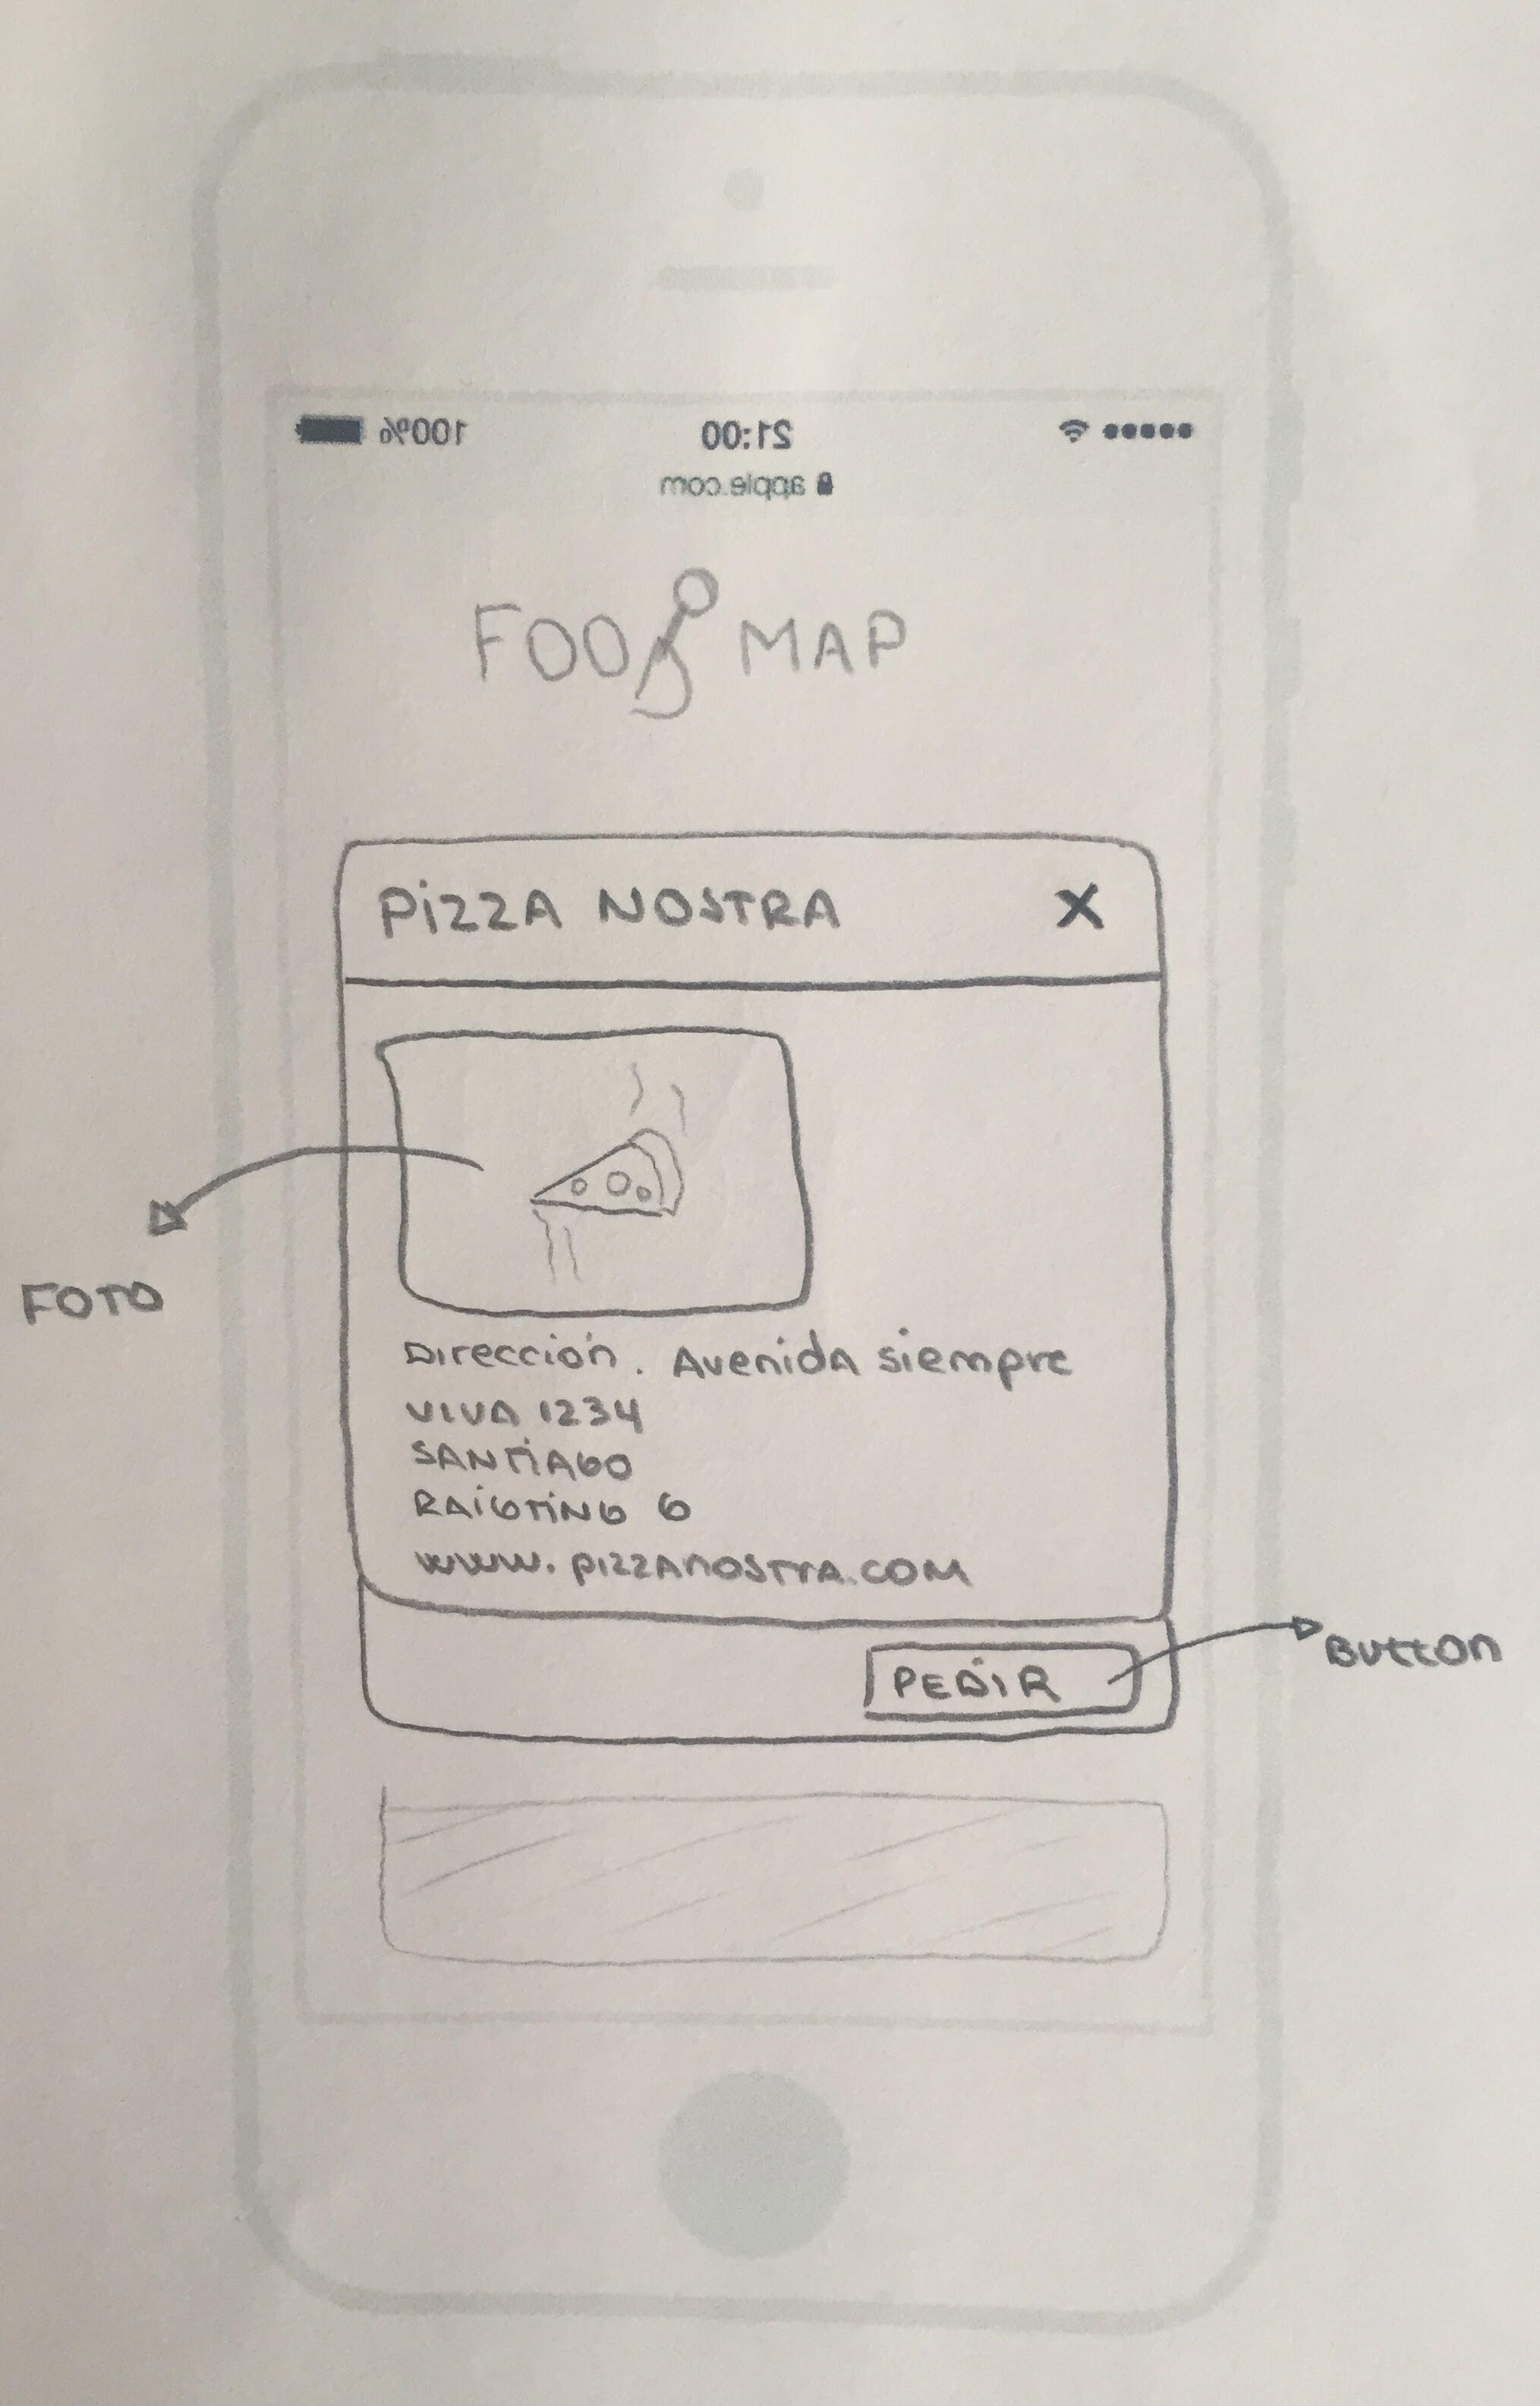 100% 21:00
apple.com
FOOD MAP
PiZZA NOSTRA X
Dirección. Avenida siempre
VIVA 1234
SANTiAGO
RAiGTiNG 6
www.pizzanostra.com
PEDiR
FOTO
Button